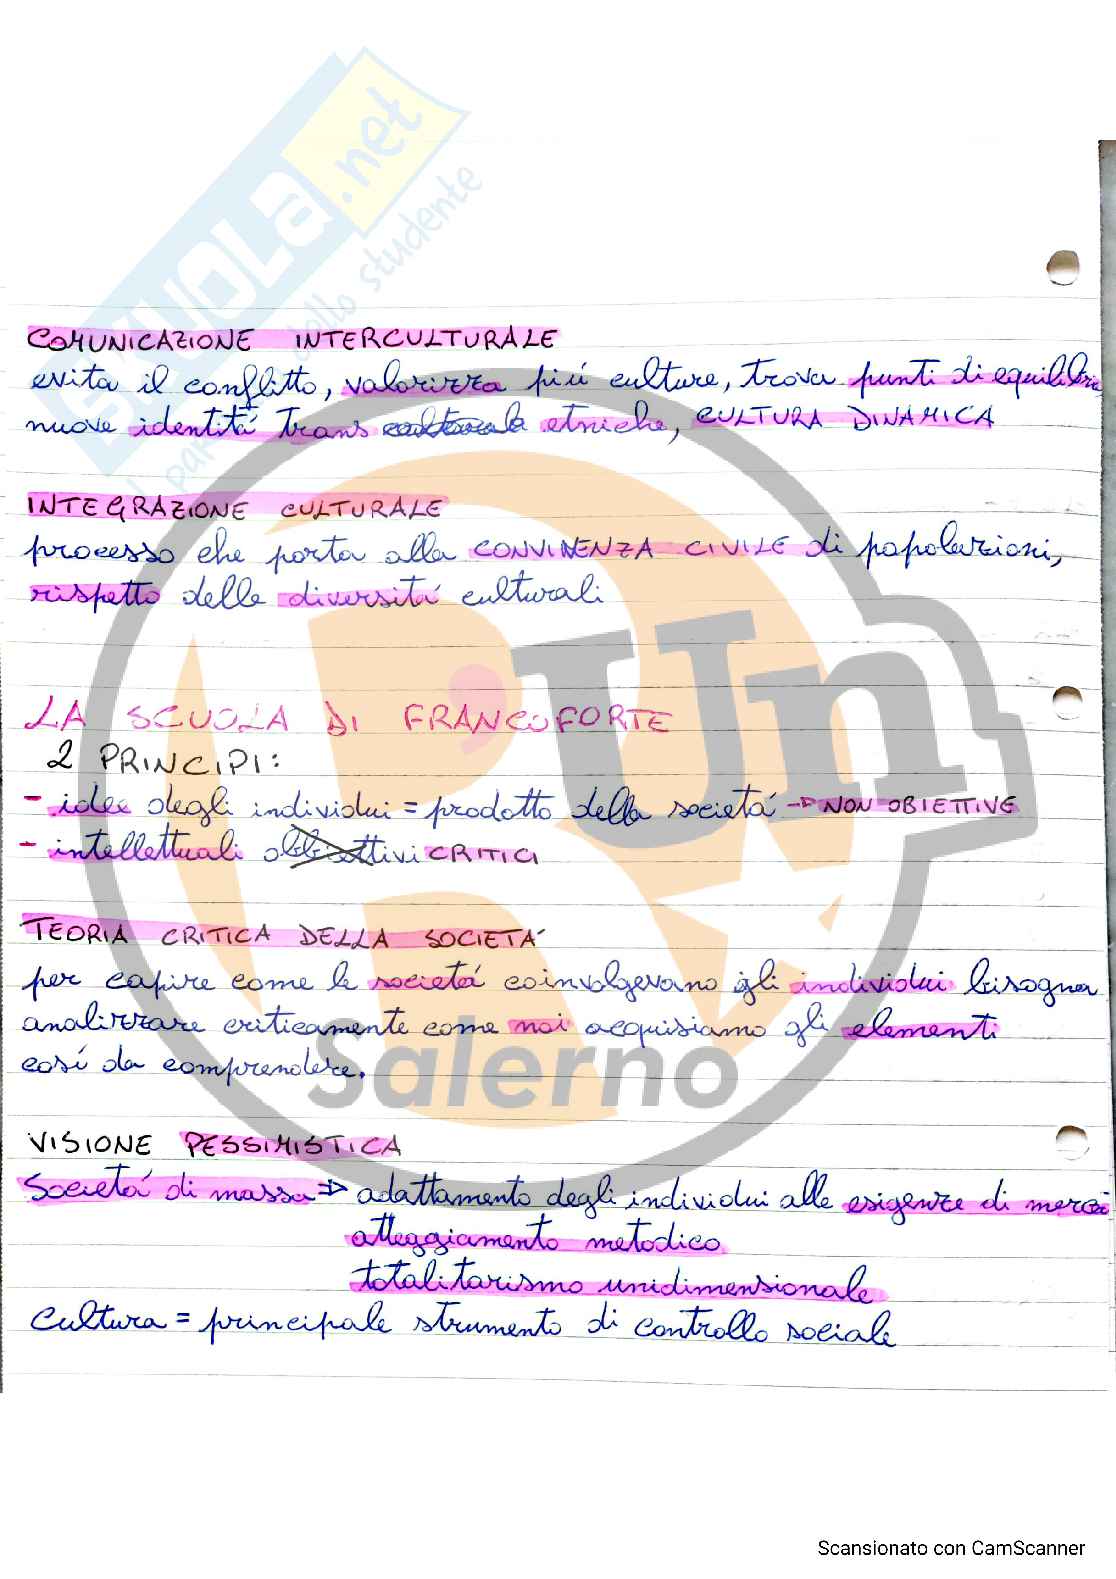 SKUOLA.net
il paradiso dello studente
COMUNICAZIONE INTERCULTURALE
evita il conflitto, valorizza piú culture, trova punti di equilibri
nuove identitá trans etniche, CULTURA DINAMICA
INTEGRAZIONE CULTURALE
processo che porta alla CONVINENZA CIVILE di popolazioni,
rispetto delle diversitá culturali
LA SCUOLA DI FRANCOFORTE
2 PRINCIPI:
- idee degli individui = prodotto della societá -> NON OBIETTIVE
- intellettuali obbiettivi CRITICI
TEORIA CRITICA DELLA SOCIETÁ
per capire come le societá coinvolgevano gli individui bisogna
analizzare criticamente come noi acquisiamo gli elementi
cosí da comprendere.
VISIONE PESSIMISTICA
Societá di massa => adattamento degli individui alle esigenze di
atteggiamento metodico
totalitarismo unidimensionale
Cultura = principale strumento di controllo sociale
Un
Salerno
Scansionato con CamScanner